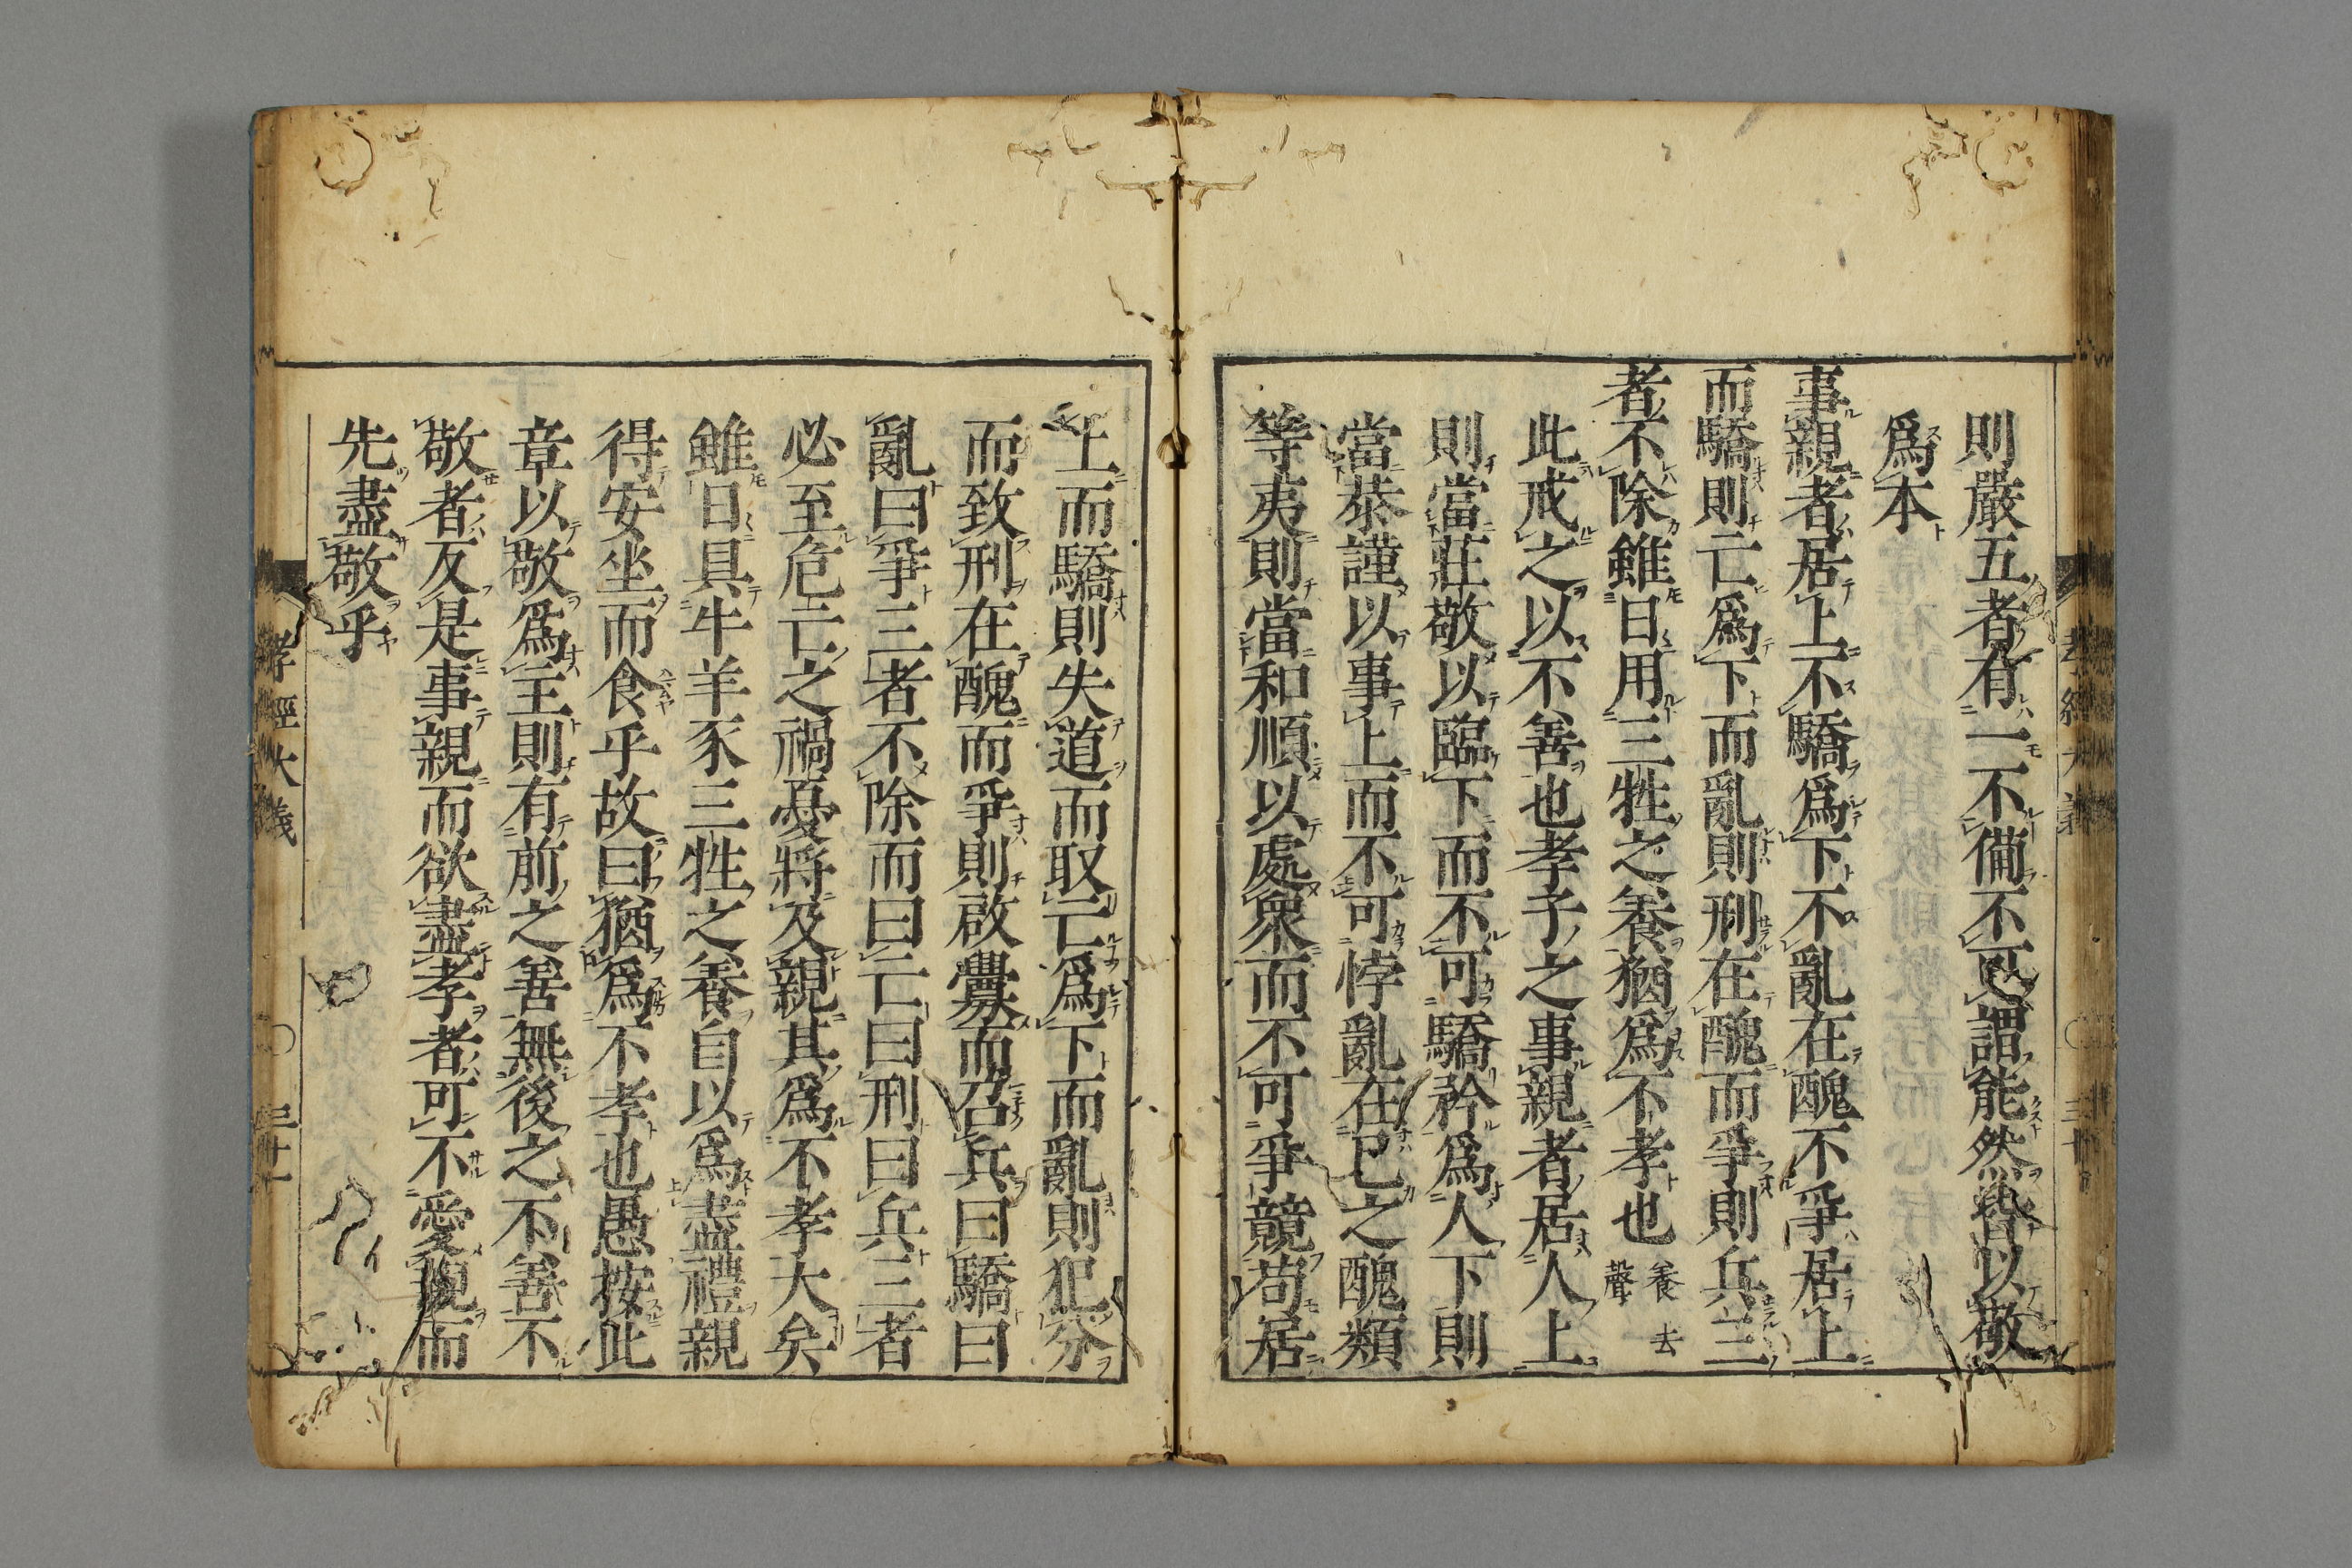 則嚴五者有一不備不可謂能然皆以敬
爲本
事親者居上不驕爲下不亂在醜不爭居上
而驕則亡爲下而亂則刑在醜而爭則兵三
者不除雖日用三牲之養猶爲不孝也養去聲
此戒之以不善也孝子之事親者居人上
則當莊敬以臨下而不可驕矜爲人下則
當恭謹以事上而不可悖亂在己之醜類
等夷則當和順以處衆而不可爭競苟居
上而驕則失道而取亡爲下而亂則犯分
而致刑在醜而爭則啟釁而召兵曰驕曰
亂曰爭三者不除而曰亡曰刑曰兵三者
必至危亡之禍憂將及親其爲不孝大矣
雖日具牛羊豕三牲之養自以爲盡禮親
得安坐而食乎故曰猶爲不孝也愚按此
章以敬爲主則有前之善無後之不善不
敬者反是事親而欲盡孝者可不愛親而
先盡敬乎
孝經大義 〇 三十一